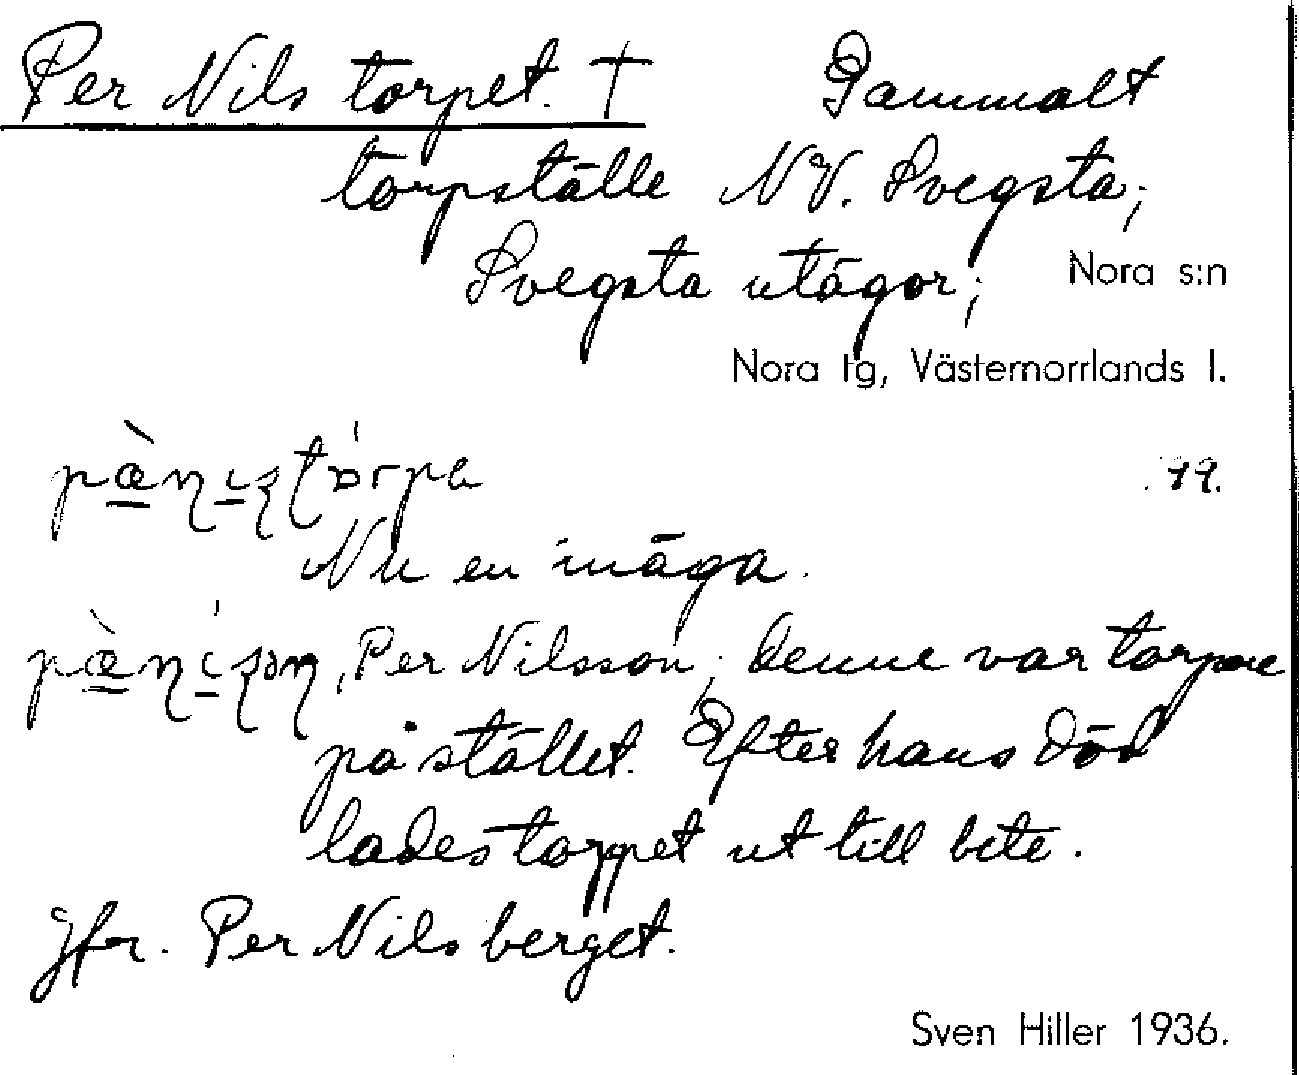 Per Nils torpet. † Gammalt
torpställe NV. Svegsta;
Svegsta utägor; Nora s:n
Nora tg, Västernorrlands l.
79.
Nu en inäga.
Per Nilsson; denne var torpare
på stället. Efter hans död
lades torpet ut till bete.
Jfr. Per Nils berget.
Sven Hiller 1936.